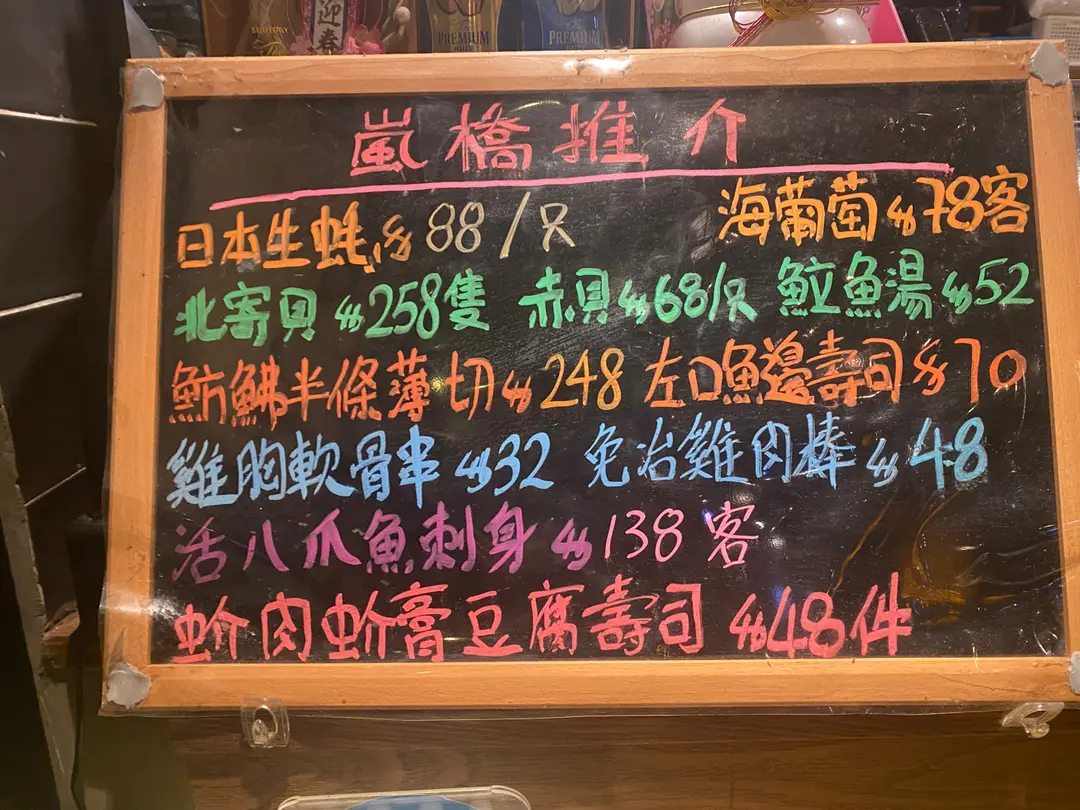 SUNTORY
迎春
PREMIUM
PREMIUM
嵐橋推介
日本生蚝 $88/只 海葡萄 $78客
北寄貝 $258隻 赤貝 $68/只 魚立魚湯 $52
魴鮄半條薄切 $248 左口魚邊壽司 $70
雞胸軟骨串 $32 免治雞肉棒 $48
活八爪魚刺身 $138客
蚧肉蚧膏豆腐壽司 $48件